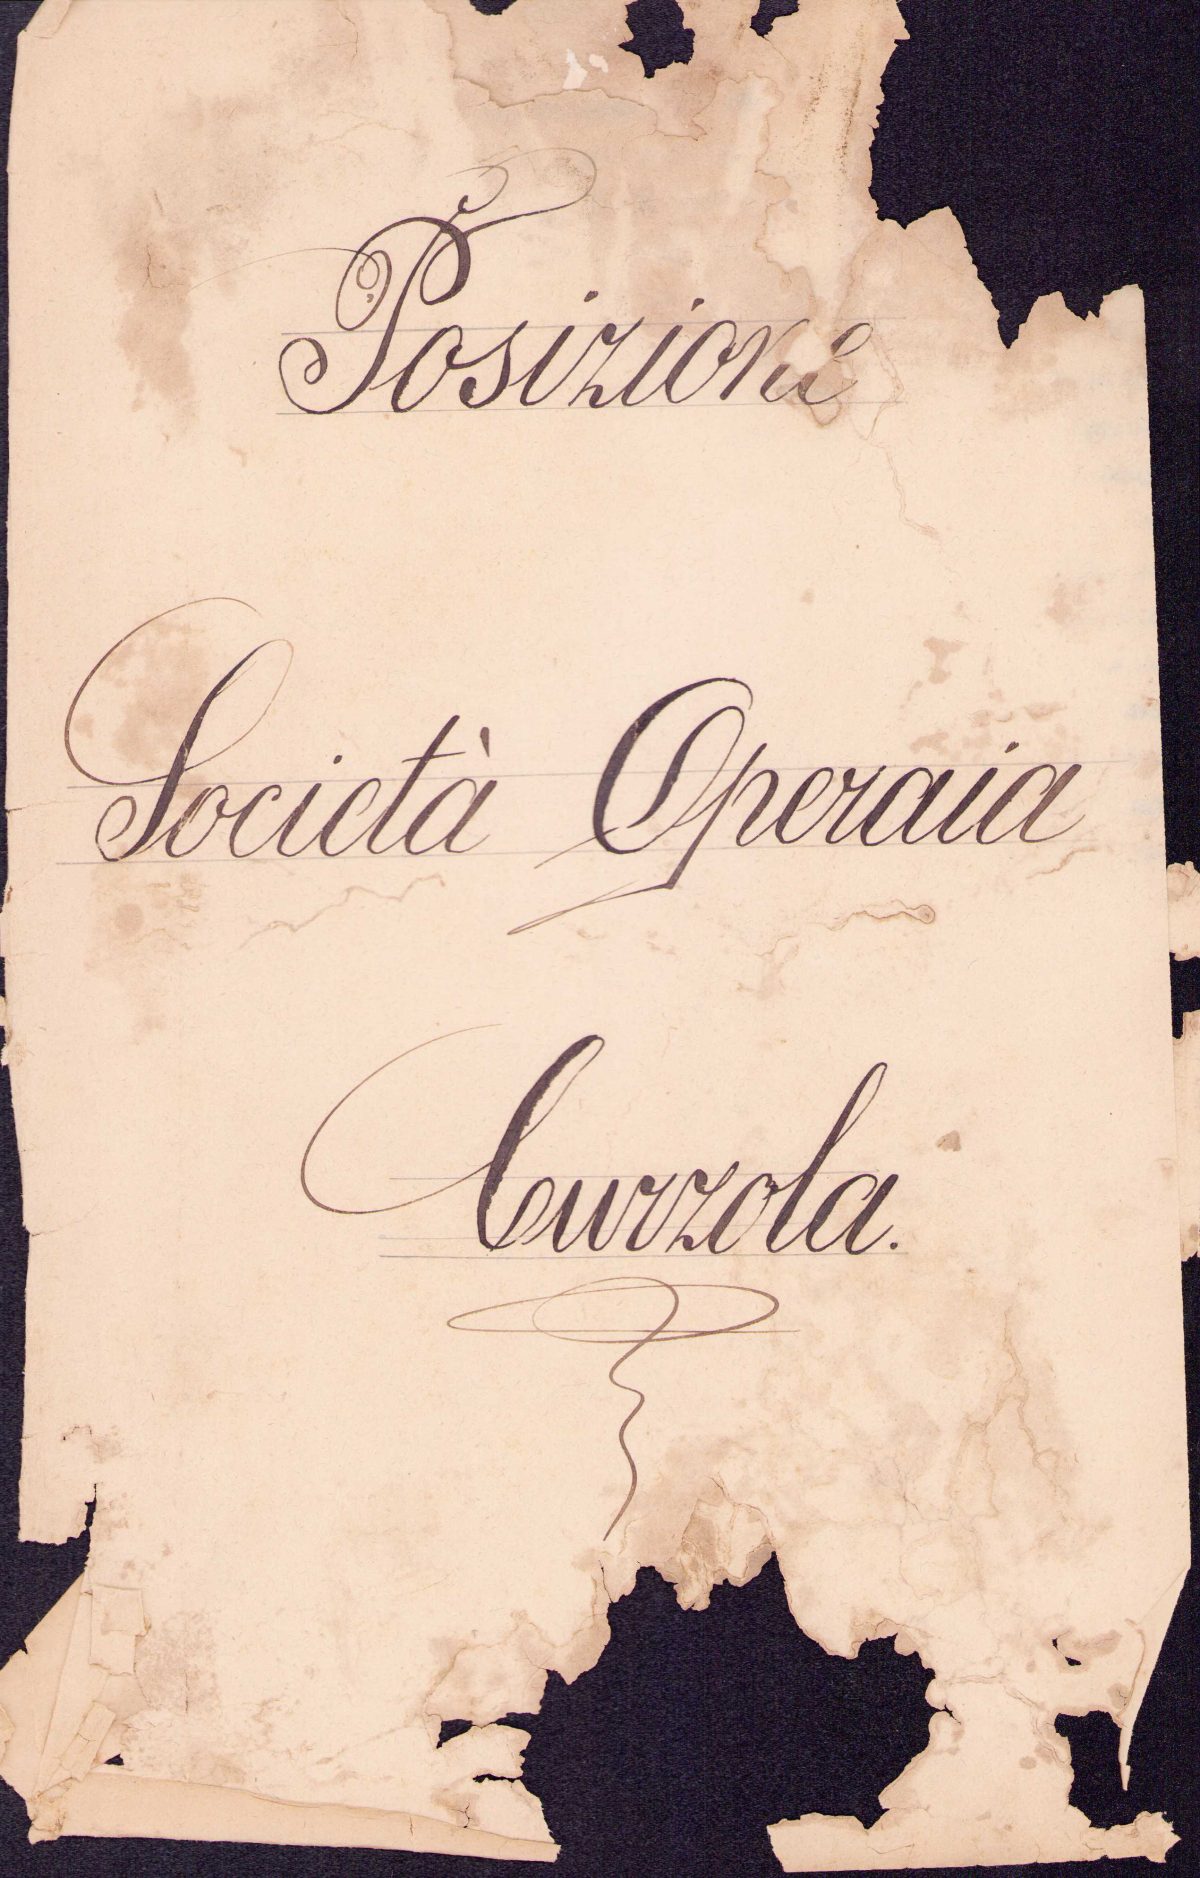 Posizione
Società Operaia
Curzola.